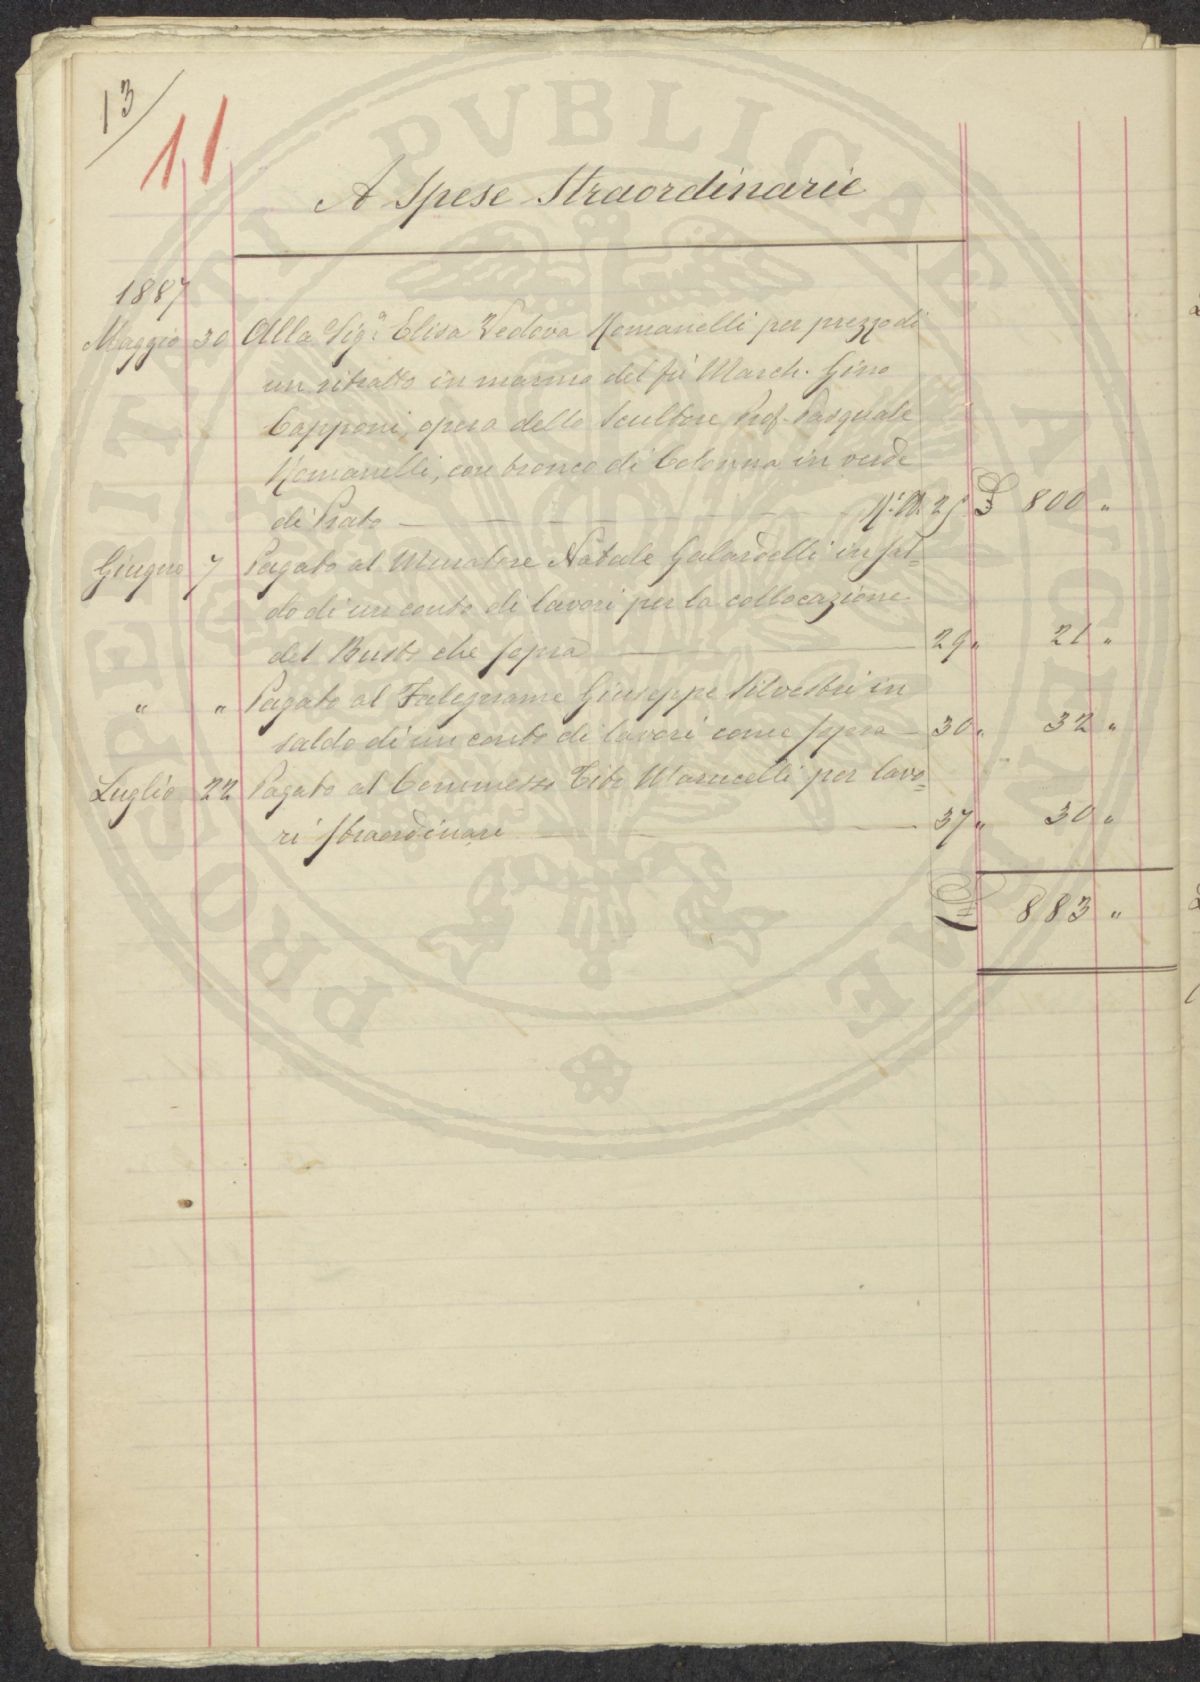 13
11
A Spese Straordinarie
1887
Maggio 30 Alla Sigª Elisa Vedova Romanelli per prezzo di
un ritratto in marmo del fù March. Gino
Capponi, opera dello Scultore Prof. Pasquale
Romanelli, con tronco di Colonna in verde
di Prato 25 £ 800 "
Giugno 7 Pagato al Muratore Natale Galardelli in sal=
do di un conto di lavori per la collocazione
del Busto che sopra 29 " 21 "
" " Pagato al Falegname Giuseppe Silvestri in
saldo di un conto di lavori come sopra 30 " 32 "
Luglio 22 Pagato al Commesso Tito Marucelli per lavo=
ri straordinari 37 " 30 "
£ 883 "
PROSPERITATI PVBLICAE AVGENDAE